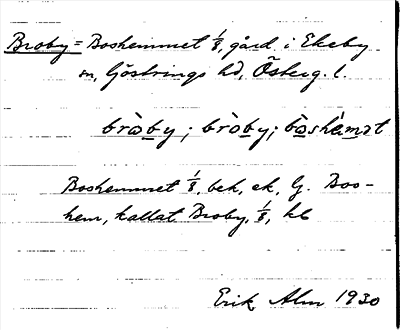 Broby = Boshemmet 1/8, gård i Ekeby
sn, Göstrings hd, Österg. l.
bròby; bròby; bòshèmət
Boshemmet 1/8, bek, ek, G. Bos-
hem, kallat Broby, 1/8, kl
Erik Alm 1930